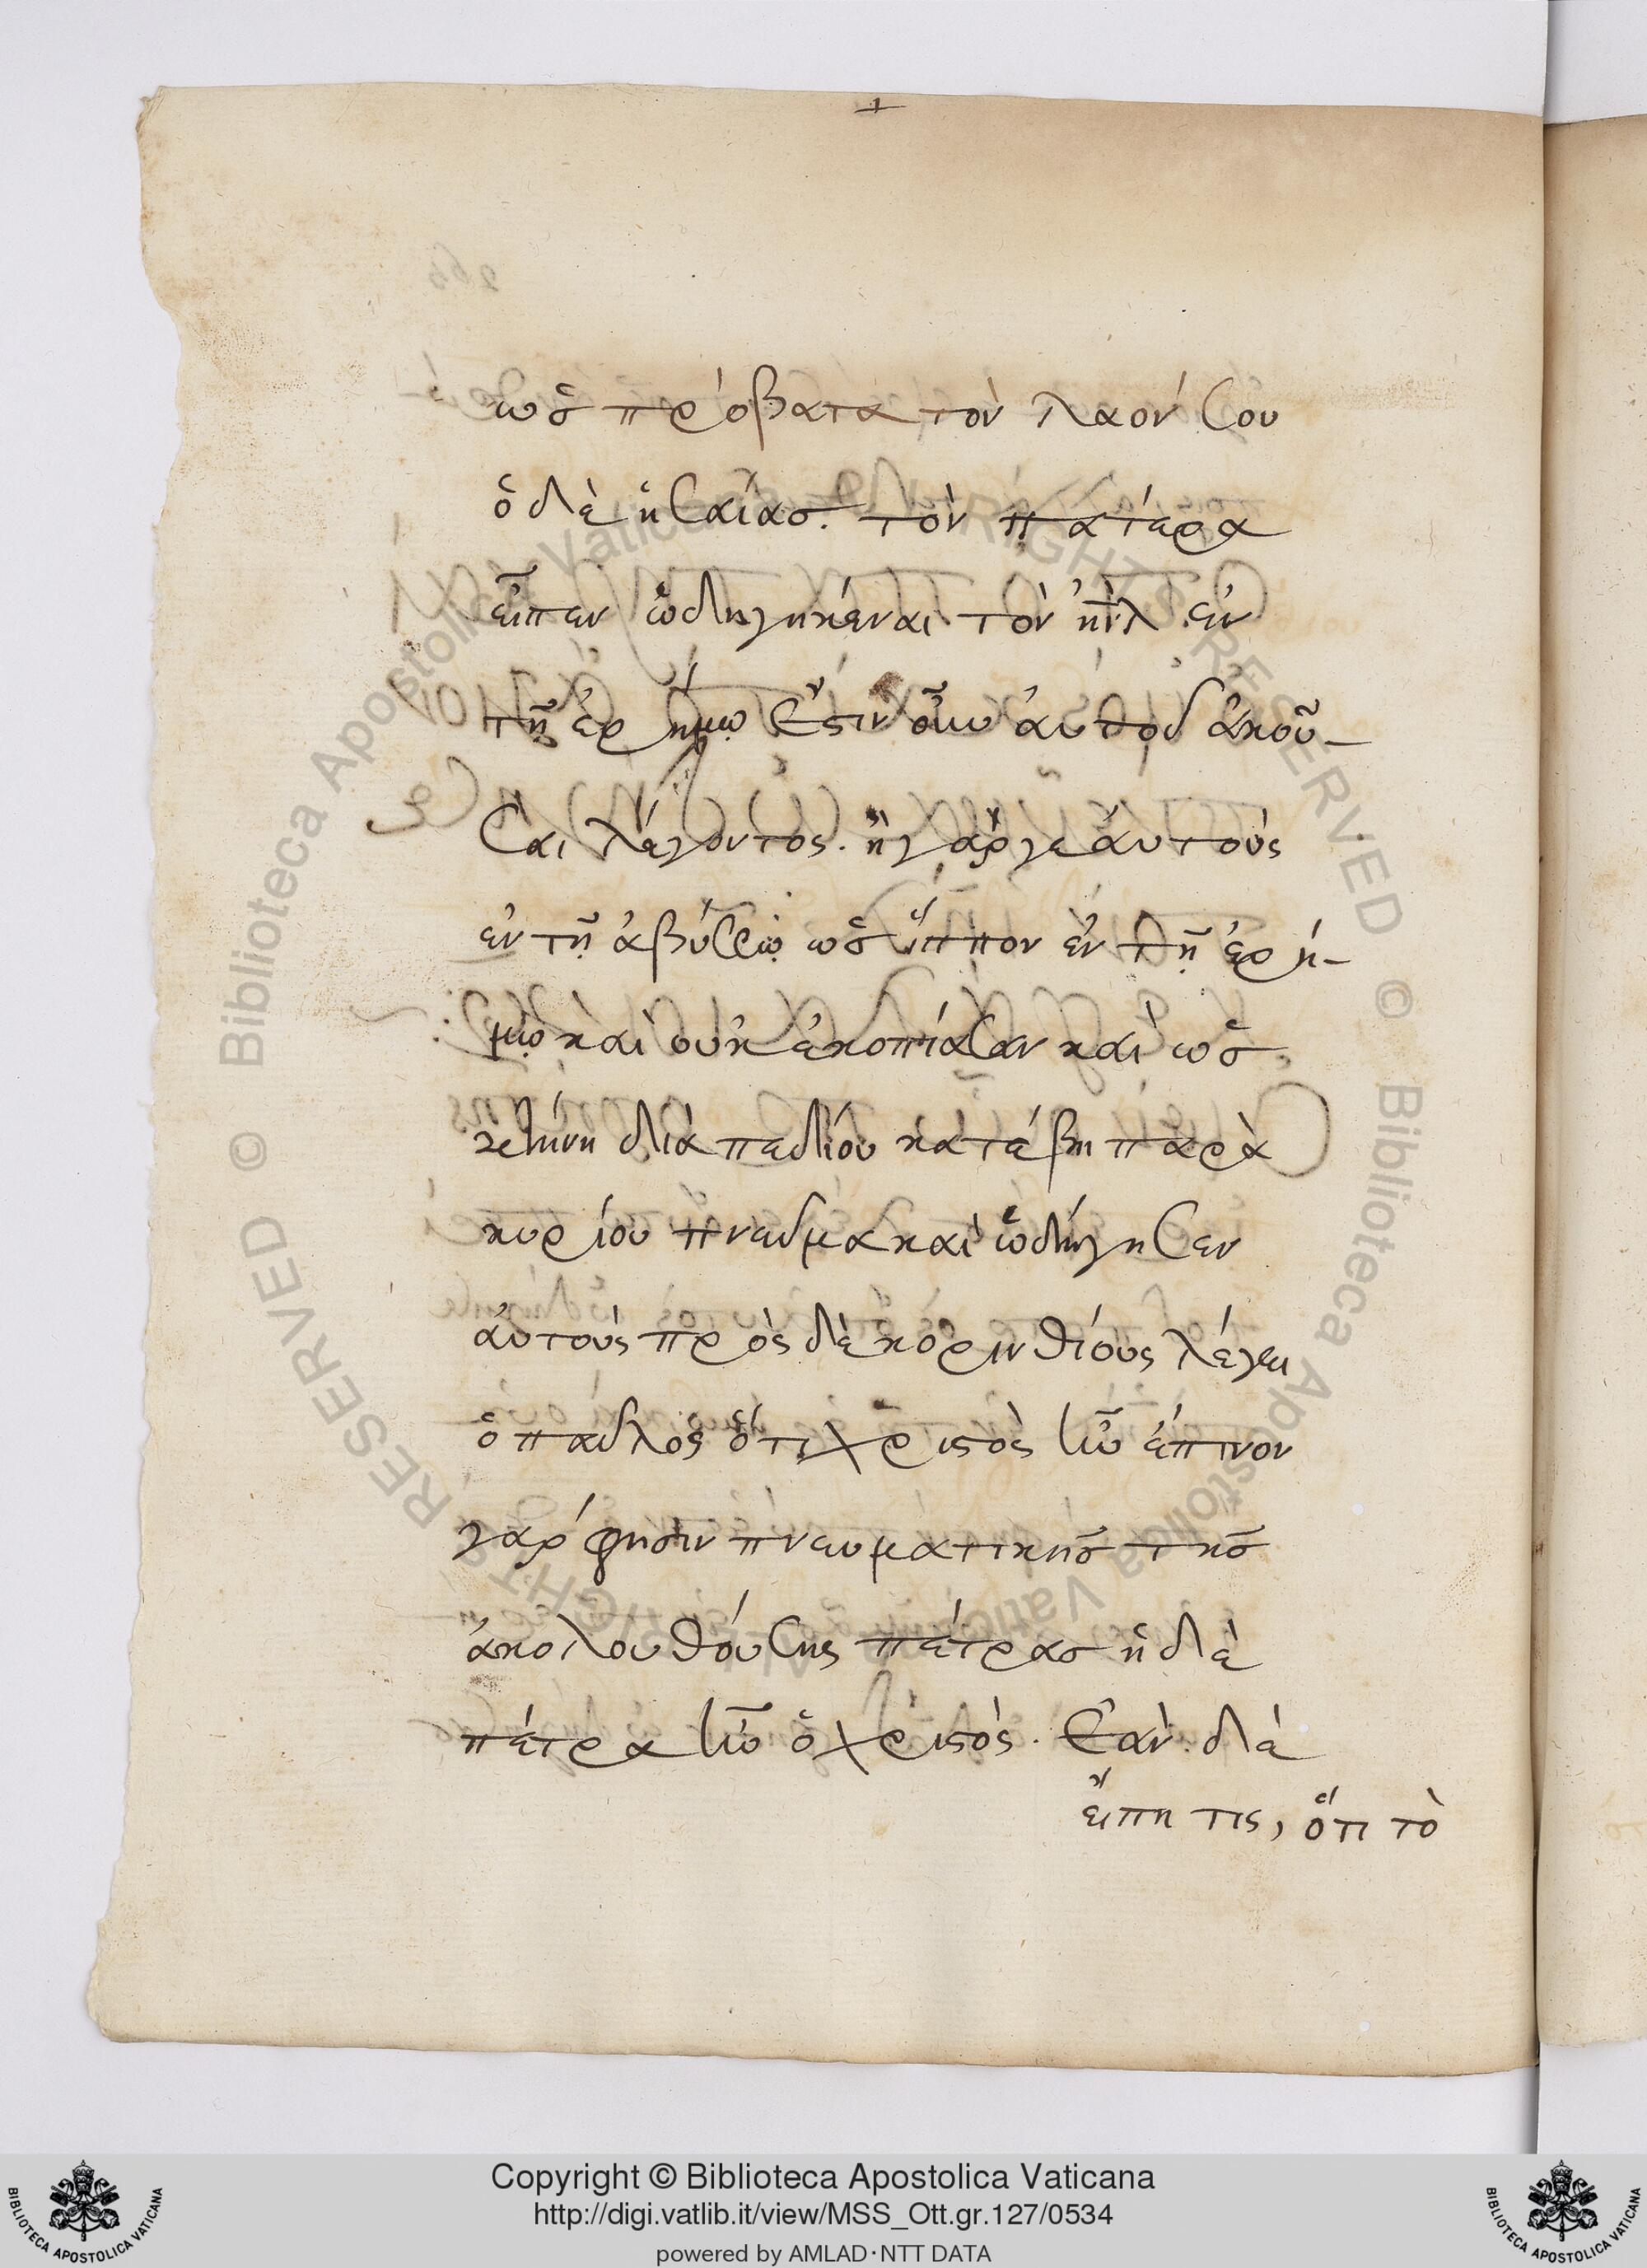 ὡς πρόβατα τὸν λαόν σου
ὁ δὲ ἡσαΐας. τὸν πατέρα
εἶπεν ὡδηγηκέναι τὸν ιηλ ἐν
τῇ ἐρήμῳ ἔστιν οὖν αὐτοῦ ἀκοῦ-
σαι λέγοντος. ἤγαγε αὐτοὺς
ἐν τῇ ἀβύσσῳ ὡς ἵππον ἐν τῇ ἐρή-
μῳ καὶ οὐκ ἐκοπίασαν καὶ ὡς
κτήνη διὰ πεδίου κατέβη παρὰ
κυρίου πνεῦμα καὶ ὡδήγησεν
αὐτοὺς πρὸς δὲ κορινθίους λέγει
ὁ παῦλος ὅτι χριστὸς ἦν ἔπινον
γάρ φησιν πνευματικῆς τῆς
ἀκολουθούσης πέτρας ἡ δὲ
πέτρα ἦν ὁ χριστὸς. ἐὰν δὲ
εἴπη τις, ὅτι τὸ
Copyright © Biblioteca Apostolica Vaticana
http://digi.vatlib.it/view/MSS_Ott.gr.127/0534
powered by AMLAD·NTT DATA
BIBLIOTECA APOSTOLICA VATICANA
BIBLIOTECA APOSTOLICA VATICANA